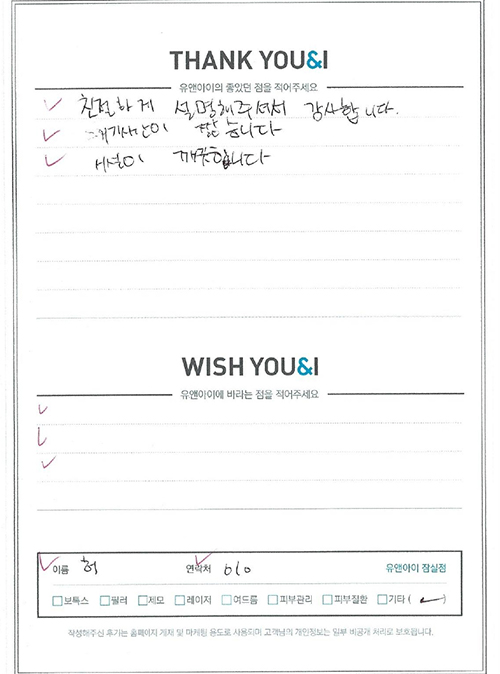 THANK YOU&I
유앤아이의 좋았던 점을 적어주세요
친절하게 설명해주셔서 감사합니다.
대기시간이 짧습니다
시설이 깨끗합니다
WISH YOU&I
유앤아이에 바라는 점을 적어주세요
이름 허 연락처 010 유앤아이 잠실점
보톡스 필러 제모 레이저 여드름 피부관리 피부질환 기타 ( )
작성해주신 후기는 홈페이지 게재 및 마케팅 용도로 사용되며 고객님의 개인정보는 일부 비공개 처리로 보호됩니다.